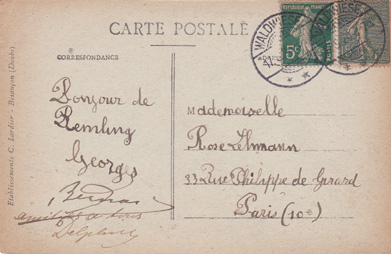 CARTE POSTALE
CORRESPONDANCE
Bonjour de
Remling
Georges
amitiés à tous
Delphine
Mademoiselle
Rose Lehmann
33 Rue Philippe de Girard
Paris (10e)
5c
Etablissements C. Lardier - Besançon (Doubs)